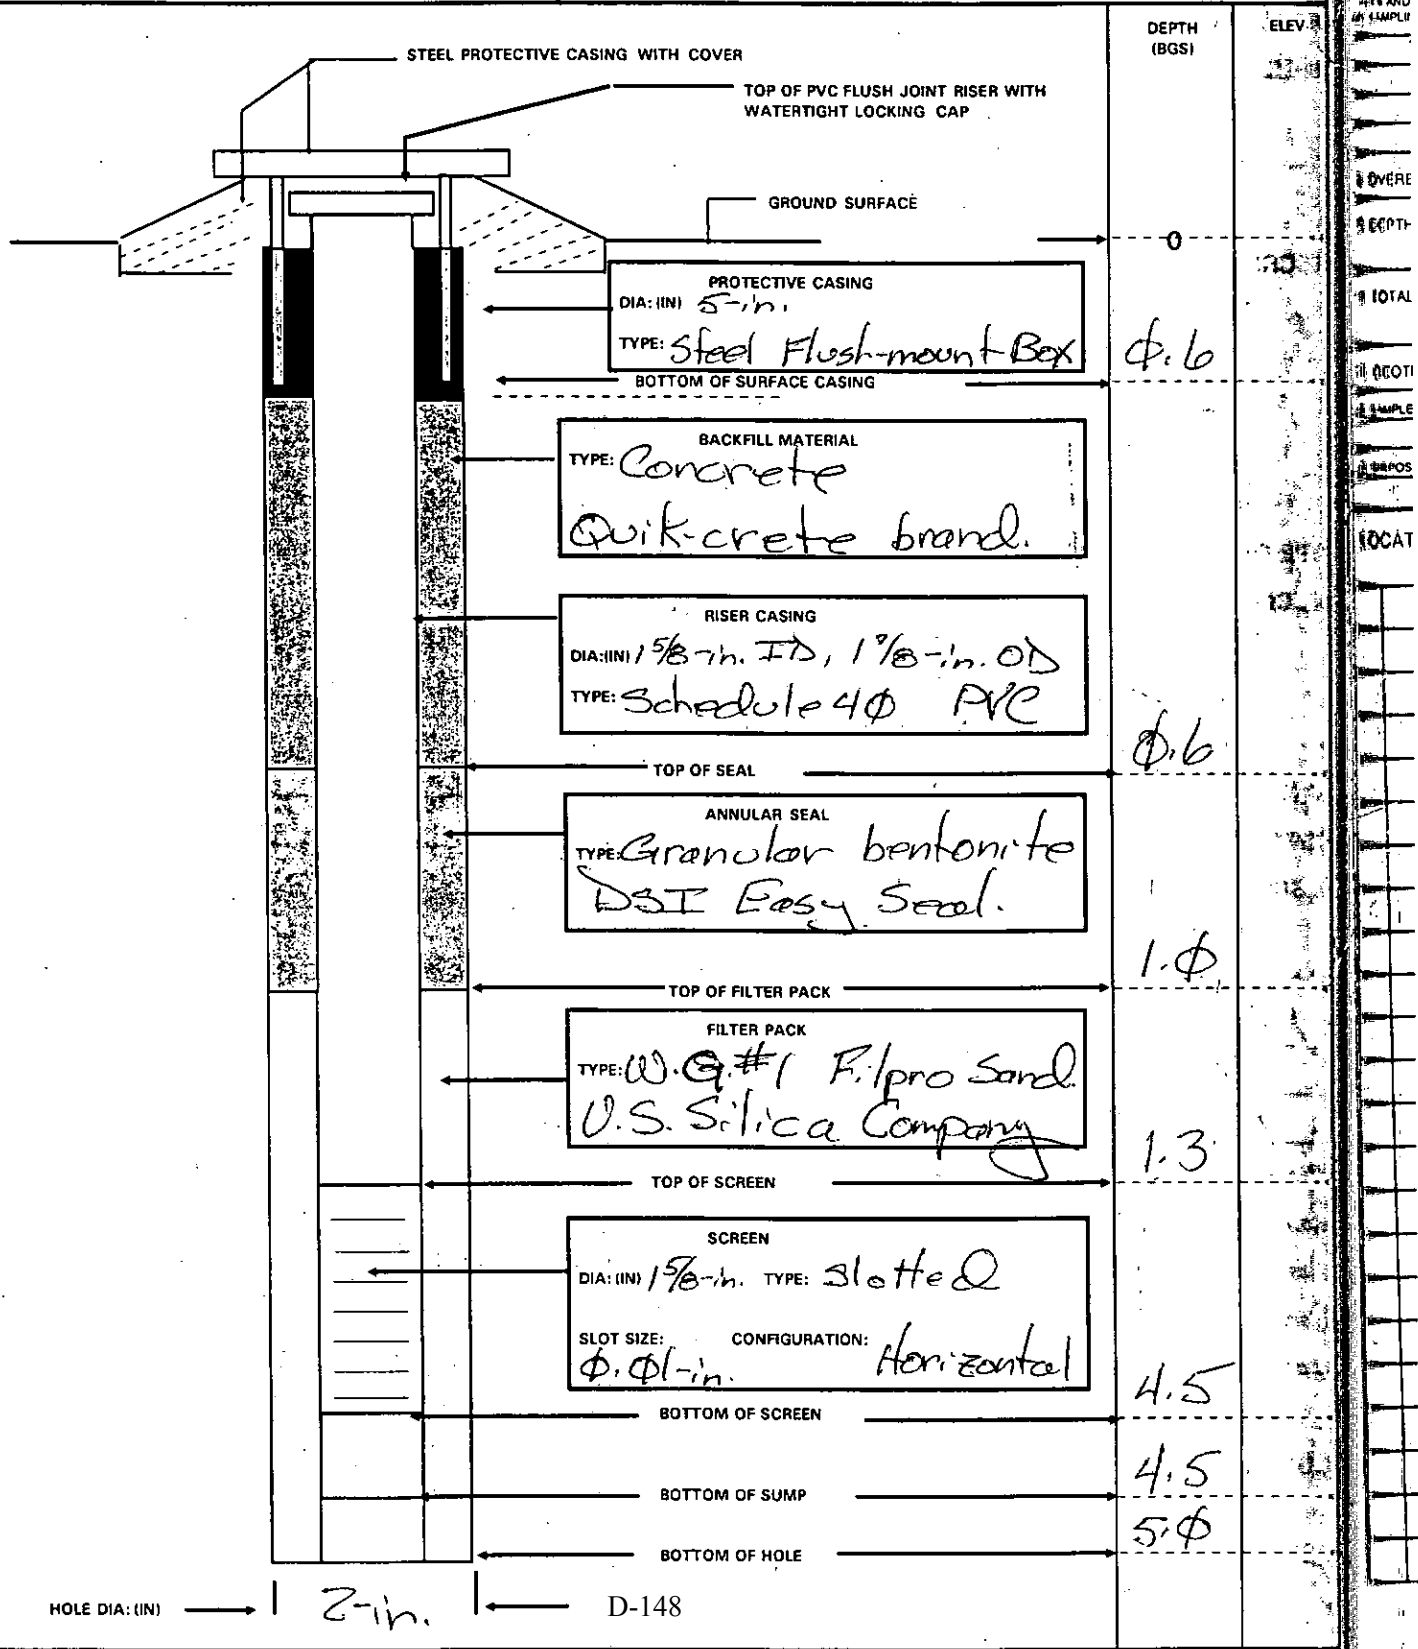 DEPTH
(BGS)
ELEV
STEEL PROTECTIVE CASING WITH COVER
TOP OF PVC FLUSH JOINT RISER WITH
WATERTIGHT LOCKING CAP
GROUND SURFACE
0
PROTECTIVE CASING
DIA: (IN) 5-in.
TYPE: Steel Flush-mount Box
Ø.6
BOTTOM OF SURFACE CASING
BACKFILL MATERIAL
TYPE: Concrete
Quik-crete brand.
RISER CASING
DIA:(IN) 1 5/8-in. ID, 1 7/8-in. OD
TYPE: Schedule 4Ø PVC
Ø.6
TOP OF SEAL
ANNULAR SEAL
TYPE: Granular bentonite
DSI Easy Seal.
1.Ø
TOP OF FILTER PACK
FILTER PACK
TYPE: W.G. #1 Filpro Sand.
U.S. Silica Company
1.3
TOP OF SCREEN
SCREEN
DIA: (IN) 1 5/8-in. TYPE: Slotted
SLOT SIZE: CONFIGURATION:
Ø.Ø1-in. Horizontal
4.5
BOTTOM OF SCREEN
4.5
BOTTOM OF SUMP
5.Ø
BOTTOM OF HOLE
HOLE DIA: (IN) 2-in. D-148
OVERE
DEPTH
TOTAL
LOCAT